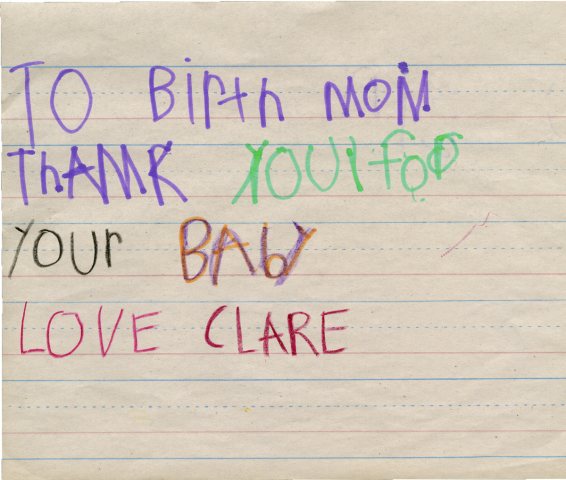 TO Birth MOM
ThANK YOU for
Your BAbY
LOVE CLARE